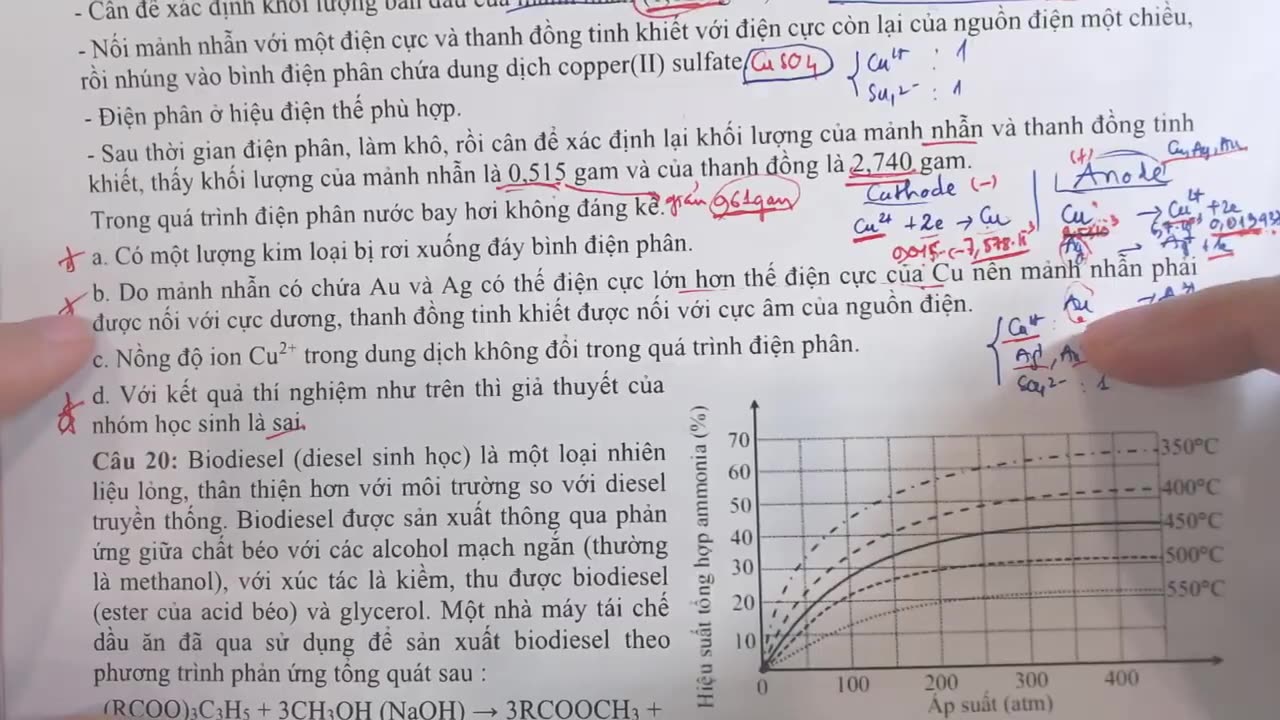 - Cân để xác định khối lượng ban đầu của
- Nối mảnh nhẫn với một điện cực và thanh đồng tinh khiết với điện cực còn lại của nguồn điện một chiều,
rồi nhúng vào bình điện phân chứa dung dịch copper(II) sulfate. CuSO4
Cu²⁺ : 1
SO₄²⁻ : 1
- Điện phân ở hiệu điện thế phù hợp.
- Sau thời gian điện phân, làm khô, rồi cân để xác định lại khối lượng của mảnh nhẫn và thanh đồng tinh
khiết, thấy khối lượng của mảnh nhẫn là 0,515 gam và của thanh đồng là 2,740 gam.
Cu, Ag, Au
Trong quá trình điện phân nước bay hơi không đáng kể. giảm 0,61gam
Cathode (-)
(+) Anode
Cu²⁺ + 2e → Cu
Cu → Cu²⁺ + 2e
Ag → Ag⁺
a. Có một lượng kim loại bị rơi xuống đáy bình điện phân.
b. Do mảnh nhẫn có chứa Au và Ag có thế điện cực lớn hơn thế điện cực của Cu nên mảnh nhẫn phải
được nối với cực dương, thanh đồng tinh khiết được nối với cực âm của nguồn điện.
Au
Cu²⁺ :
SO₄²⁻ : 1
c. Nồng độ ion Cu²⁺ trong dung dịch không đổi trong quá trình điện phân.
d. Với kết quả thí nghiệm như trên thì giả thuyết của
nhóm học sinh là sai.
Câu 20: Biodiesel (diesel sinh học) là một loại nhiên
liệu lỏng, thân thiện hơn với môi trường so với diesel
truyền thống. Biodiesel được sản xuất thông qua phản
ứng giữa chất béo với các alcohol mạch ngắn (thường
là methanol), với xúc tác là kiềm, thu được biodiesel
(ester của acid béo) và glycerol. Một nhà máy tái chế
dầu ăn đã qua sử dụng để sản xuất biodiesel theo
phương trình phản ứng tổng quát sau :
(RCOO)₃C₃H₅ + 3CH₃OH (NaOH) → 3RCOOCH₃ +
Hiệu suất tổng hợp ammonia (%)
70
60
50
40
30
20
10
350°C
400°C
450°C
500°C
550°C
0 100 200 300 400
Áp suất (atm)